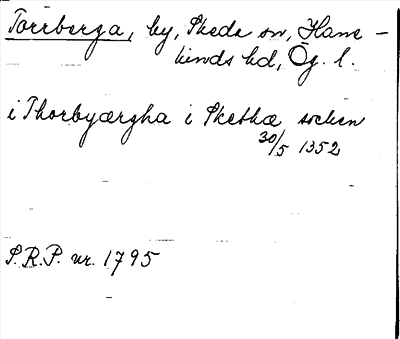 Torrberga, by, Skeda sn, Hane-
kinds hd, Ög. l.
i Thorbyærgha i Skethæ socken
30/5 1352
S.R.P. nr. 1795